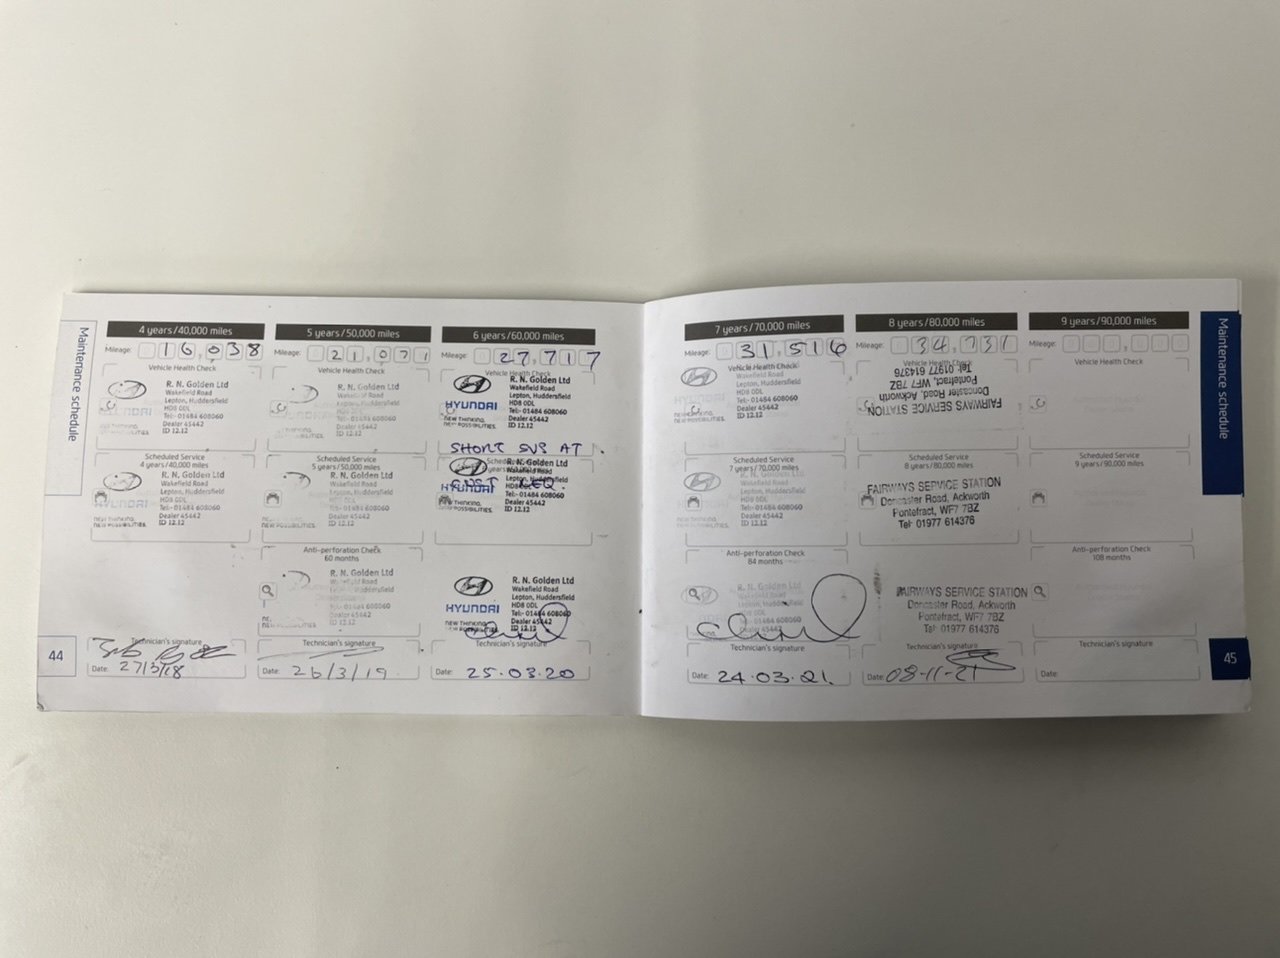 Maintenance schedule
44
4 years/40,000 miles
Mileage: 16,038
Vehicle Health Check
R. N. Golden Ltd
Wakefield Road
Lepton, Huddersfield
HD8 0DL
Tel:- 01484 608060
Dealer 45442
ID 12.12
Scheduled Service
4 years/40,000 miles
R. N. Golden Ltd
Wakefield Road
Lepton, Huddersfield
HD8 0DL
Tel:- 01484 608060
Dealer 45442
ID 12.12
HYUNDAI
NEW THINKING.
NEW POSSIBILITIES.
Technician's signature
Date: 27/3/18
5 years/50,000 miles
Mileage: 21,071
Vehicle Health Check
R. N. Golden Ltd
Wakefield Road
Lepton, Huddersfield
HD8 0DL
Tel:- 01484 608060
Dealer 45442
ID 12.12
Scheduled Service
5 years/50,000 miles
R. N. Golden Ltd
Wakefield Road
Lepton, Huddersfield
HD8 0DL
Tel:- 01484 608060
Dealer 45442
ID 12.12
Anti-perforation Check
60 months
R. N. Golden Ltd
Wakefield Road
Lepton, Huddersfield
HD8 0DL
Tel:- 01484 608060
Dealer 45442
ID 12.12
Technician's signature
Date: 26/3/19
6 years/60,000 miles
Mileage: 27,717
Vehicle Health Check
R. N. Golden Ltd
Wakefield Road
Lepton, Huddersfield
HD8 0DL
Tel:- 01484 608060
Dealer 45442
ID 12.12
HYUNDAI
NEW THINKING.
NEW POSSIBILITIES.
SHORT SVS AT
CUST REQ.
R. N. Golden Ltd
Wakefield Road
Lepton, Huddersfield
HD8 0DL
Tel:- 01484 608060
Dealer 45442
ID 12.12
HYUNDAI
NEW THINKING.
NEW POSSIBILITIES.
R. N. Golden Ltd
Wakefield Road
Lepton, Huddersfield
HD8 0DL
Tel:- 01484 608060
Dealer 45442
ID 12.12
HYUNDAI
NEW THINKING.
NEW POSSIBILITIES.
Technician's signature
Date: 25.03.20
7 years/70,000 miles
Mileage: 31,516
Vehicle Health Check
Wakefield Road
Lepton, Huddersfield
HD8 0DL
Tel:- 01484 608060
Dealer 45442
ID 12.12
Scheduled Service
7 years/70,000 miles
R. N. Golden Ltd
Wakefield Road
Lepton, Huddersfield
HD8 0DL
Tel:- 01484 608060
Dealer 45442
ID 12.12
Anti-perforation Check
84 months
R. N. Golden Ltd
Wakefield Road
Lepton, Huddersfield
HD8 0DL
Tel:- 01484 608060
Dealer 45442
Technician's signature
Date: 24.03.21.
8 years/80,000 miles
Mileage: 34,731
Vehicle Health Check
FAIRWAYS SERVICE STATION
Doncaster Road, Ackworth
Pontefract, WF7 7BZ
Tel: 01977 614376
Scheduled Service
8 years/80,000 miles
FAIRWAYS SERVICE STATION
Doncaster Road, Ackworth
Pontefract, WF7 7BZ
Tel: 01977 614376
FAIRWAYS SERVICE STATION
Doncaster Road, Ackworth
Pontefract, WF7 7BZ
Tel: 01977 614376
Technician's signature
Date: 08-11-21
9 years/90,000 miles
Mileage:
Vehicle Health Check
Scheduled Service
9 years/90,000 miles
Anti-perforation Check
108 months
Technician's signature
Date:
Maintenance schedule
45